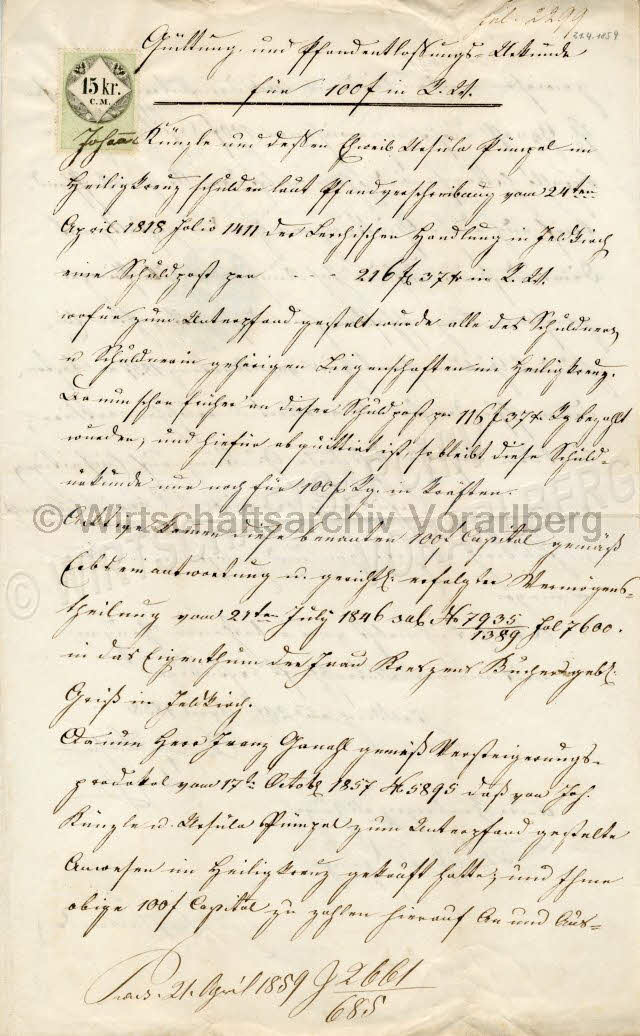 fol. 2299
21.4.1859
Quittung und Pfandentlassungs-Urkunde
für 100 f in R. W.
15 kr.
C.M.
Johann Künzle und dessen Eheweib Ursula Pümpel im
Heiligkreuz schulden laut Pfandverschreibung vom 24ten
April 1818 Folio 1411 der Lerchischen Handlung in Feldkirch
eine Schuldpost per - - - - 216 f 37 xr in R. W.
wofür zum Unterpfand gestelt wurde alle des Schuldners
u Schuldnerin gehörigen Liegenschaften im Heiligkreuz.
Da nun schon früher an dieser Schuldpost pr 116 f 37 xr bezahlt
wurden, und hiefür abquittiert ist, so bleibt diese Schuld-
urkunde nur noch für 100 f in Kräften.
© Wirtschaftsarchiv Vorarlberg
kamen diese benanten 100 f Capital gemäß
Erbseinantwortung u. gerichtl. erfolgter Vermögens-
theilung vom 21ten July 1846 sub No 7935/1389 fol 7600.
in das Eigenthum der Frau Kreszenz Bucher gebl.
Griß in Feldkirch.
Da nun Herr Franz Ganahl gemäß Versteigerungs-
protokol vom 17t. Octob. 1857 N. 5895 daß von Joh.
Künzle u. Ursula Pümpel zum Unterpfand gestelte
Anwesen im Heiligkreuz gekauft hatte, und Ihme
obige 100 f Capital zu zahlen hierauf An und Aus-
21. April 1859 2661/685